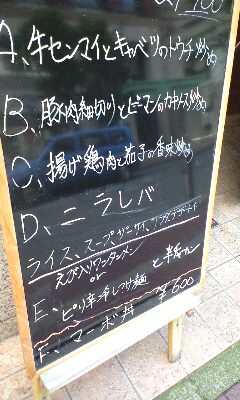 A、牛センマイとキャベツのトウチ炒め
B、豚肉細切りとピーマンのカキソース炒め
C、揚げ鶏肉と茄子の香味炒め
D、ニラレバ
ライス、スープ、ザーサイ、
えび入りワンタンメン
or と半炒カン
E、ピリ辛冷しつけ麺
F、マーボ丼 ¥600